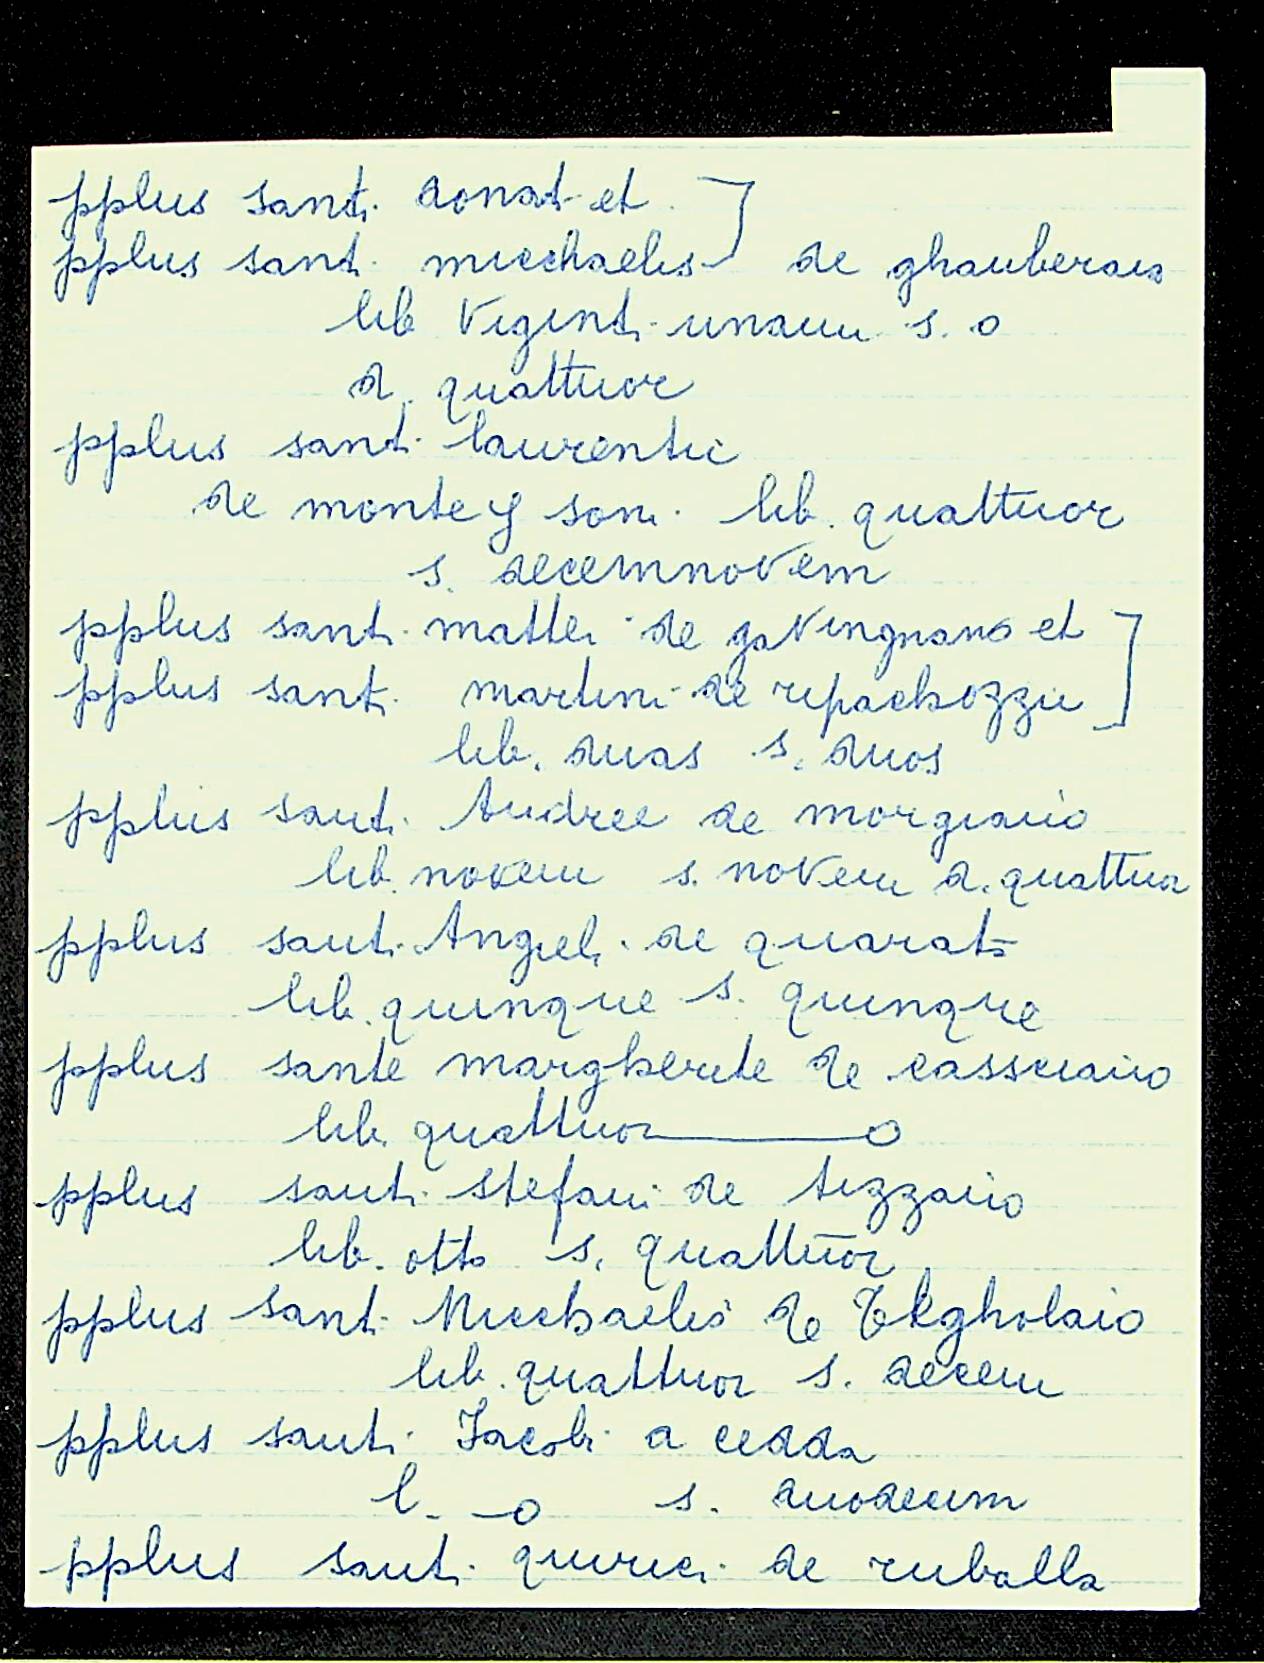 pplus santi donat et
pplus santi miechaelis de ghauberaia
lib Vigenti unam s. o
d. quattuor
pplus santi laurentii
de monte y soni lib. quattuor
s. decemnovem
pplus santi mattei de gaVingnano et
pplus santi martini de ripachozzii
lib. duas s. duos
pplus santi Andree de morgiano
lib. novem s. noVem d. quattuor
pplus santi Angieli de quarato
lib. quinque s. quinque
pplus sante margherite de casseiano
lib. quattuor o
pplus santi stefani de tizzano
lib. otto s. quattuor
pplus santi Miechaelis de Tegholaio
lib. quattuor s. decem
pplus santi Jacobi a cedda
l. o s. duodecim
pplus santi quirici de ruballa